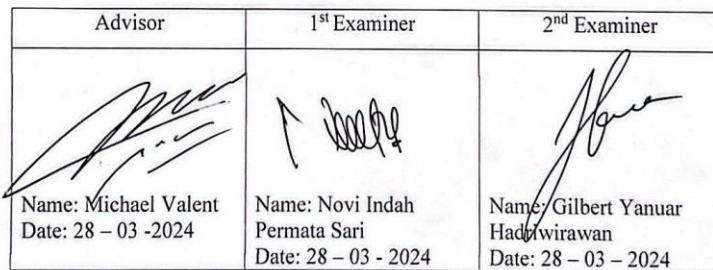 Advisor
1st Examiner
2nd Examiner
Name: Michael Valent
Date: 28 – 03 -2024
Name: Novi Indah
Permata Sari
Date: 28 – 03 - 2024
Name: Gilbert Yanuar
Hadiwirawan
Date: 28 – 03 – 2024